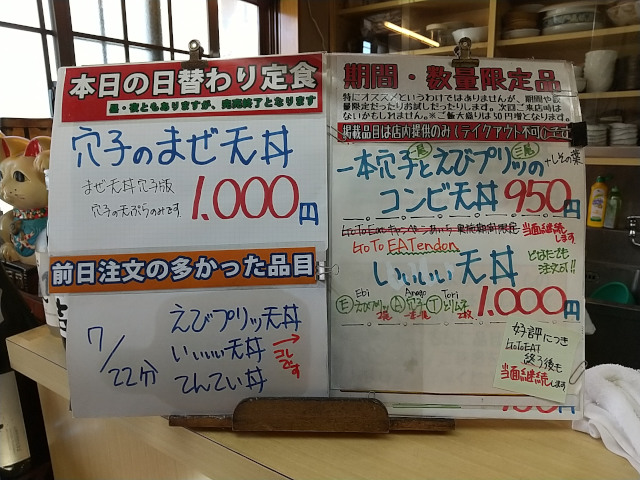 本日の日替わり定食
昼・夜ともありますが、完売終了となります
穴子のまぜ天丼
まぜ天丼穴子版
穴子の天ぷらのみです
1,000円
前日注文の多かった品目
7/22分
えびプリッ天丼
いいいい天丼
てんてい丼
→コレです
期間・数量限定品
特にオススメというわけではありませんが、期間や数
量限定だったりお試しだったりします。次回ご来店時は
ないかもしれません。※ご飯大盛りは50円増となります。
掲載品目は店内提供のみ(テイクアウト不可)です
一本穴子と二尾えびプリッの三尾
+しその葉
コンビ天丼 950円
GoToEatキャンペーンあやかり 実施期間限定
当面継続します
GoTo EATendon
いいいい天丼
どなたでも
注文可!!
Ebi Anago Tori
Eえびプリッ2尾 A穴子一本 Tとりム子2枚
1,000円
好評につき
GoToEAT
終了後も
当面継続します